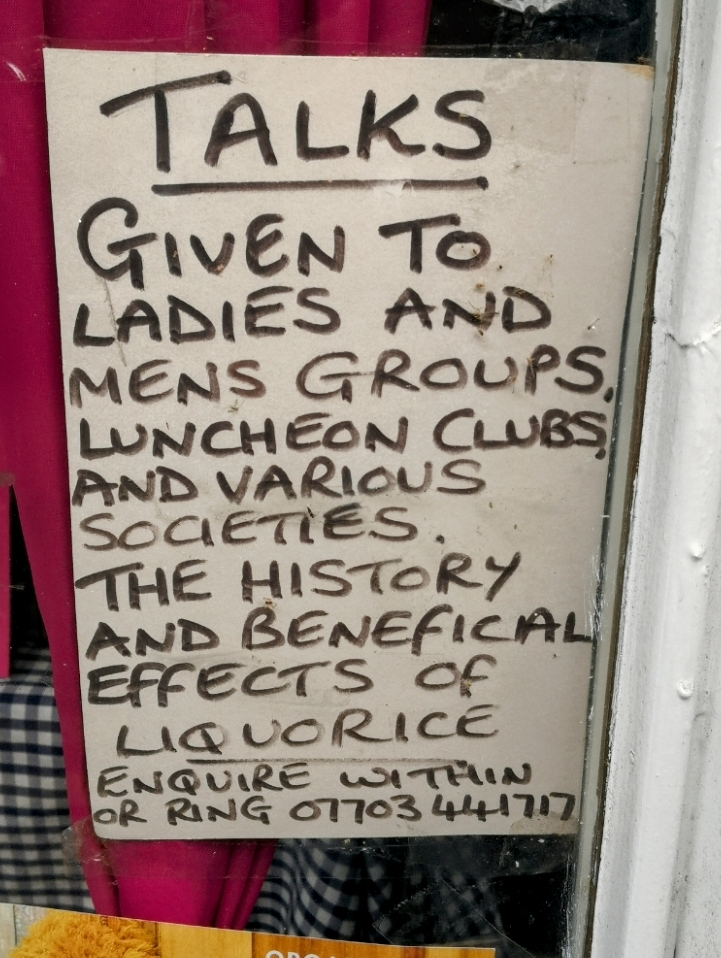 TALKS
GIVEN TO
LADIES AND
MENS GROUPS,
LUNCHEON CLUBS,
AND VARIOUS
SOCIETIES.
THE HISTORY
AND BENEFICAL
EFFECTS OF
LIQUORICE
ENQUIRE WITHIN
OR RING 07703 441717